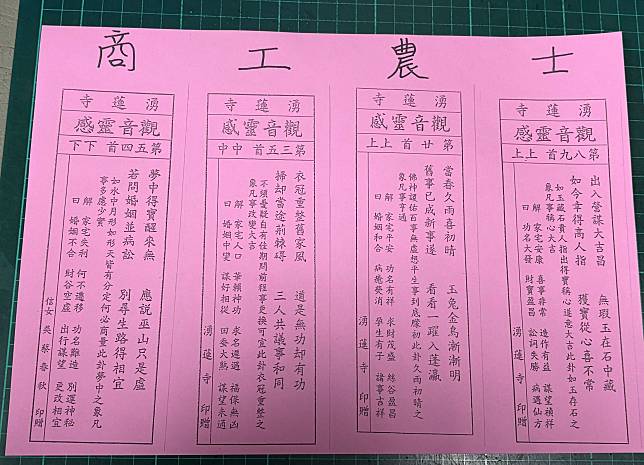 士
湧蓮寺
觀音靈感
第八九首 上上
出入營謀大吉昌 無瑕玉在石中藏
如今幸得高人指 獲寶從心喜不常
如玉藏石貴人指出得寶稱心遂意大吉此卦如玉在石之
象凡事稱心大吉
解 家宅安康 喜事非常 造作有益 謀望禎祥
曰 功名大發 財寶盈昌 訟詞失勝 病遇仙方
湧蓮寺 印贈
農
湧蓮寺
觀音靈感
第廿首 上上
當春久雨喜初晴 玉兔金烏漸漸明
舊事已成新事遂 看看一躍入蓬瀛
佛神護佑百事無虛想平生事到底朦初此卦久雨初晴之
象凡事亨通
解 家宅平安 功名有祥 求財茂盛 絲谷盈昌
曰 婚姻和合 病癒災消 孕生有子 諸事吉祥
湧蓮寺 印贈
工
湧蓮寺
觀音靈感
第三五首 中中
衣冠重整舊家風 道是無功却有功
掃却當途荊棘碍 三人共議事和同
不須憂疑自有佳期問前程事更換可宜此卦衣冠重整之
象凡事改變大吉
解 家宅人口 華賴神功 求名遲遇 福保無凶
曰 婚姻中變 謀好相從 田蚕大熟 謀望未通
湧蓮寺 印贈
商
湧蓮寺
觀音靈感
第五四首 下下
夢中得寶醒來無 應說巫山只是虛
若問婚姻並病訟 別尋生路得相宜
如水中月形如形天皆有分定何必商量此卦夢中之象凡
事多處少實
解 家宅失利 何不遷移 功名難造 別運神秘
曰 婚姻不合 財谷空虛 出行謀望 更改相宜
信女吳蔡春秋 印贈